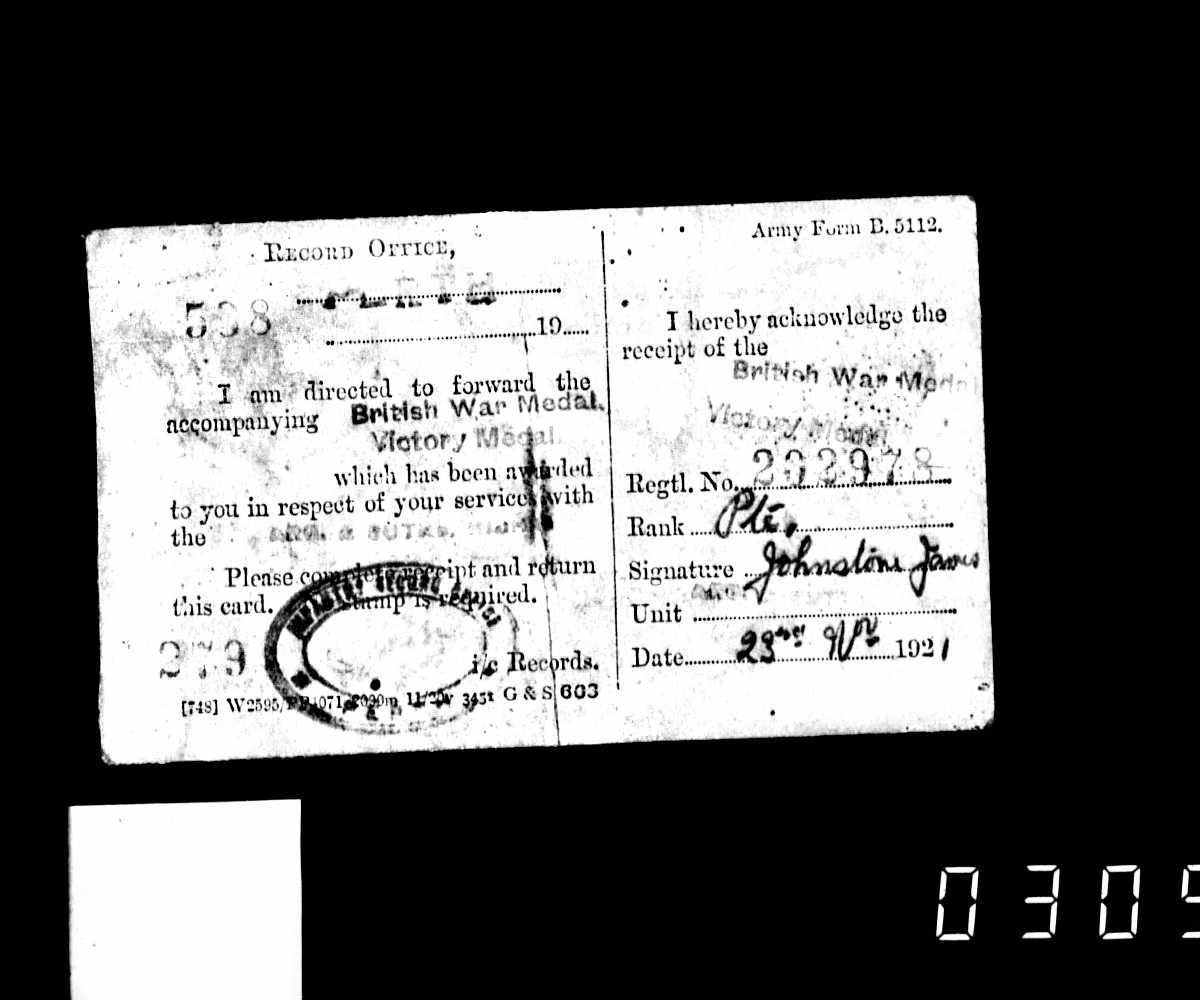 Record Office,
538
19
I am directed to forward the
accompanying British War Medal.
Victory Medal.
which has been awarded
to you in respect of your services with
the ARG. & SUTHD. HIGHRS
Please complete receipt and return
this card. stamp is required.
279
i/c Records.
[748] W2595/ 11/20 345t G & S 603
Army Form B. 5112.
I hereby acknowledge the
receipt of the
British War Medal
Victory Medal
Regtl. No. 202978
Rank Pte.
Signature Johnstone James
Unit
Date 23rd 1921
0309